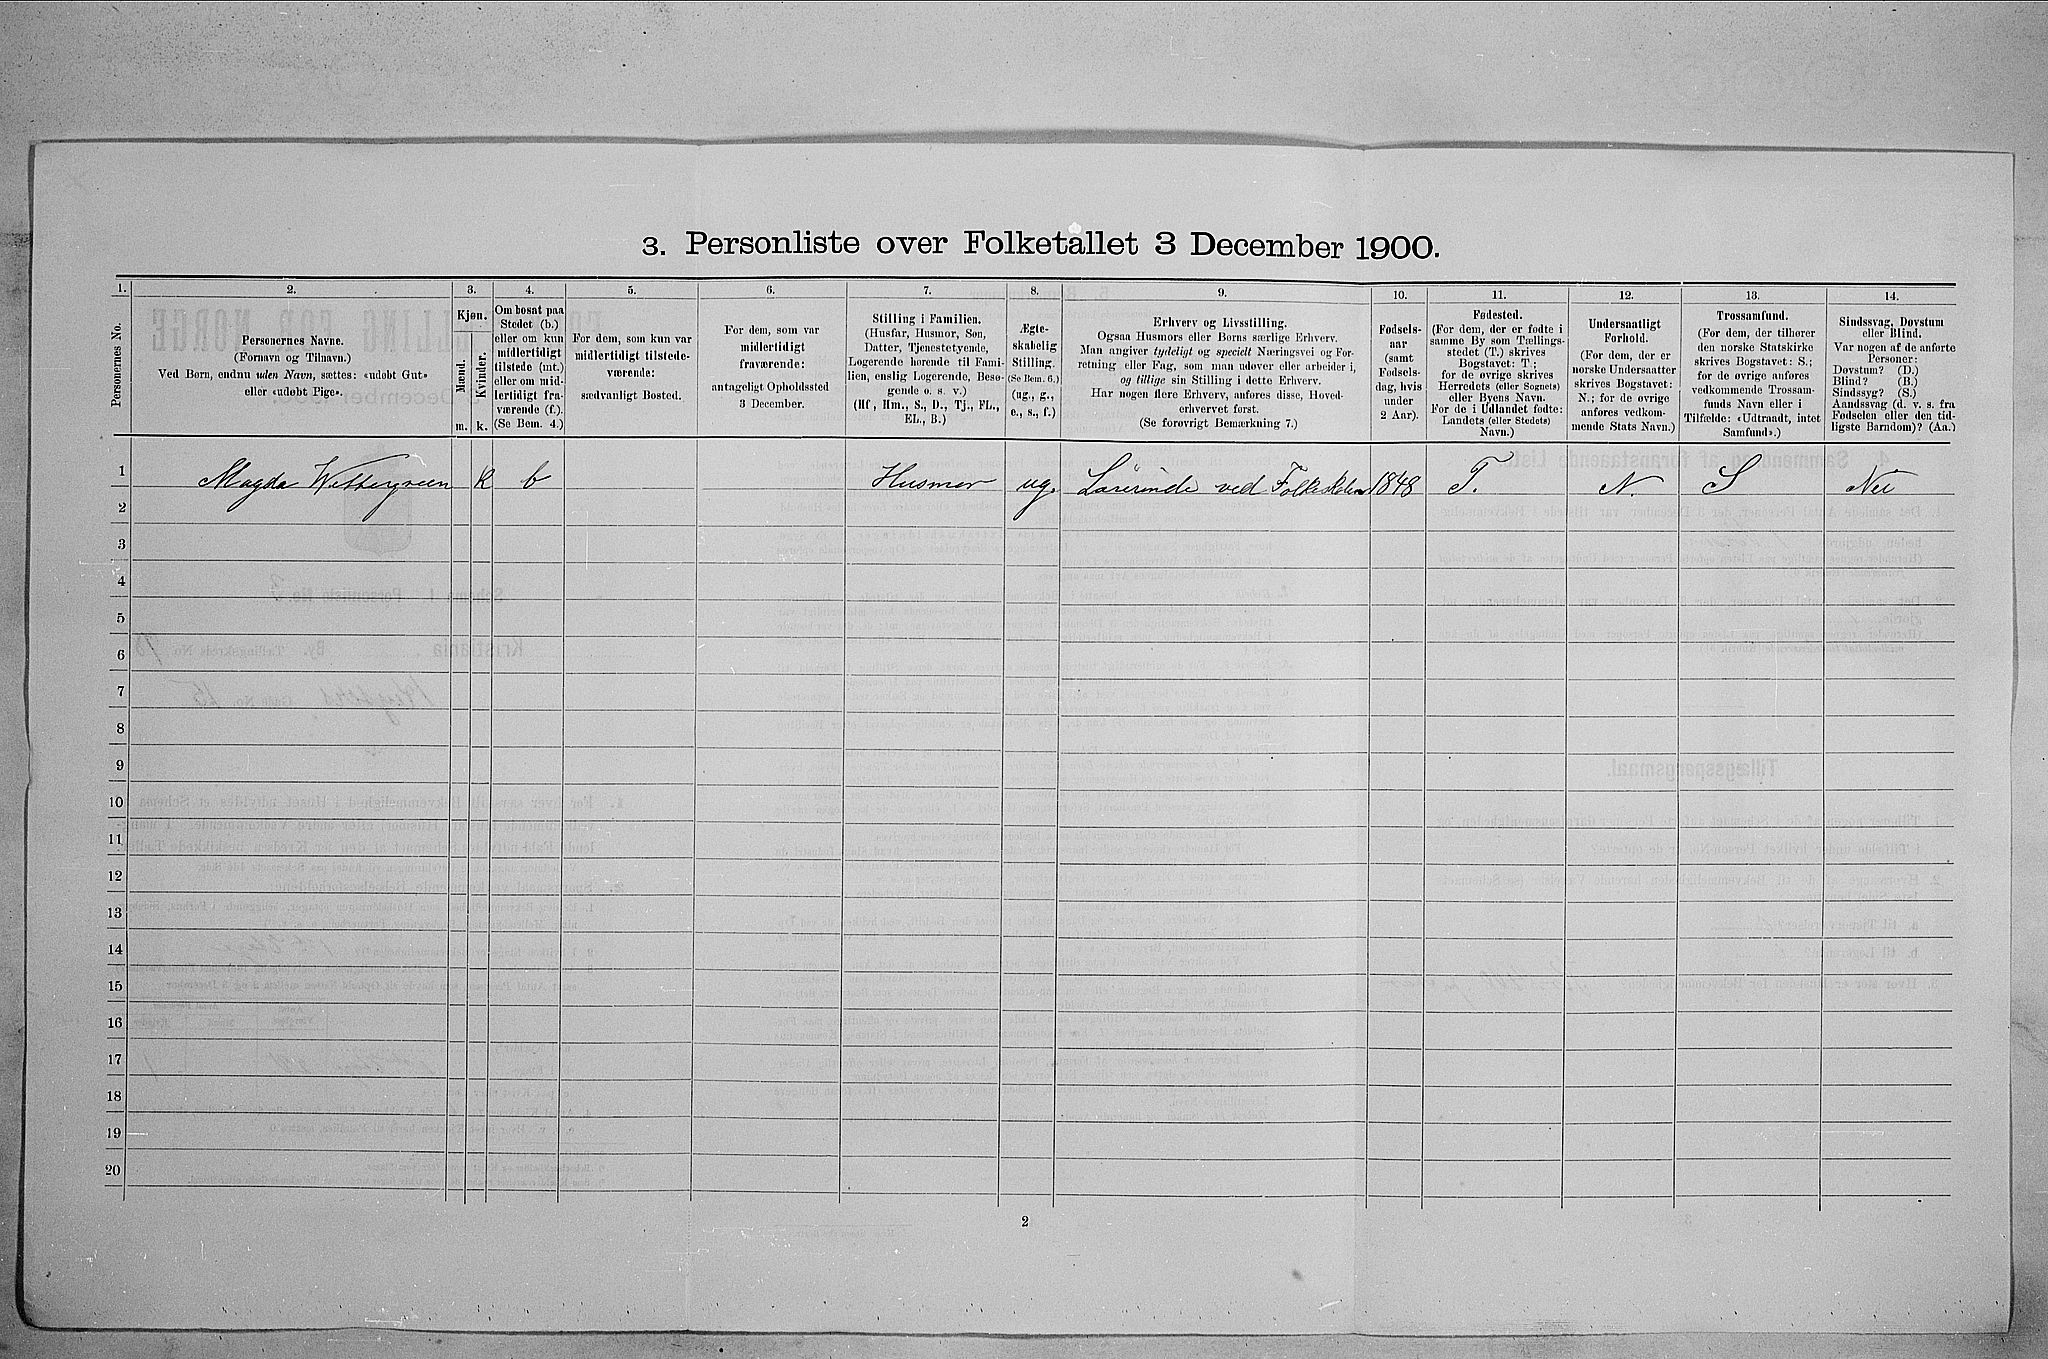 3. Personliste over Folketallet 3 December 1900.
1.
Personernes No.
2.
Personernes Navne.
(Fornavn og Tilnavn.)
Ved Børn, endnu uden Navn, sættes: «udøbt Gut»
eller «udøbt Pige».
3.
Kjøn.
Mænd.
Kvinder.
m. k.
4.
Om bosat paa
Stedet (b.)
eller om kun
midlertidigt
tilstede (mt.)
eller om mid-
lertidigt fra-
værende (f.)
(Se Bem. 4.)
5.
For dem, som kun var
midlertidigt tilstede-
værende:
sædvanligt Bosted.
6.
For dem, som var
midlertidigt
fraværende:
antageligt Opholdssted
3 December.
7.
Stilling i Familien.
(Husfar, Husmor, Søn,
Datter, Tjenestetyende,
Logerende hørende til Fami-
lien, enslig Logerende, Besø-
gende o. s. v.)
(Hf, Hm., S., D., Tj., FL.,
EL., B.)
8.
Ægte-
skabelig
Stilling.
(Se Bem. 6.)
(ug., g.,
e., s., f.)
9.
Erhverv og Livsstilling.
Ogsaa Husmors eller Børns særlige Erhverv.
Man angiver tydeligt og specielt Næringsvei og For-
retning eller Fag, som man udøver eller arbeider i,
og tillige sin Stilling i dette Erhverv.
Har nogen flere Erhverv, anføres disse, Hoved-
erhvervet først.
(Se forøvrigt Bemærkning 7.)
10.
Fødsels-
aar
(samt
Fødsels-
dag, hvis
under
2 Aar).
11.
Fødested.
(For dem, der er fødte i
samme By som Tællings-
stedet (T.) skrives
Bogstavet: T;
for de øvrige skrives
Herredets (eller Sognets)
eller Byens Navn.
For de i Udlandet fødte:
Landets (eller Stedets)
Navn.)
12.
Undersaatligt
Forhold.
(For dem, der er
norske Undersaatter
skrives Bogstavet:
N.; for de øvrige
anføres vedkom-
mende Stats Navn.)
13.
Trossamfund.
(For dem, der tilhører
den norske Statskirke
skrives Bogstavet: S.;
for de øvrige anføres
vedkommende Trossam-
funds Navn eller i
Tilfælde: «Udtraadt, intet
Samfund».)
14.
Sindssvag, Døvstum
eller Blind.
Var nogen af de anførte
Personer:
Døvstum? (D.)
Blind? (B.)
Sindssyg? (S.)
Aandssvag (d. v. s. fra
Fødselen eller den tid-
ligste Barndom)? (Aa.)
1 Magda Wettergreen K b Husmor ug. Lærerinde ved Folkeskolen 1848 T. N. S Nei
2
3
4
5
6
7
8
9
10
11
12
13
14
15
16
17
18
19
20
2